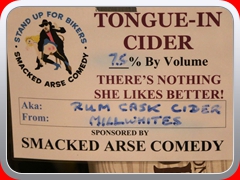 STAND UP FOR BIKERS
SMACKED ARSE COMEDY
TONGUE-IN
CIDER
7.5 % By Volume
THERE'S NOTHING
SHE LIKES BETTER!
Aka: RUM CASK CIDER
From: MILLWHITES
SPONSORED BY
SMACKED ARSE COMEDY